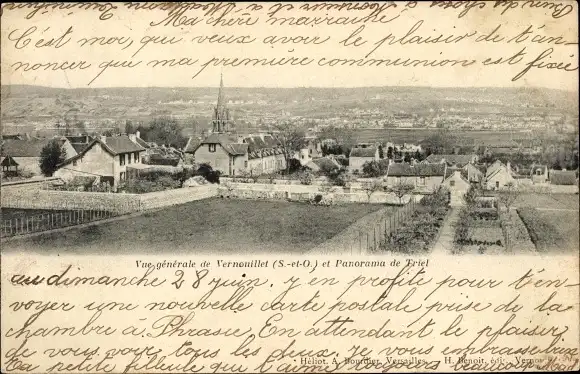 Ma chère marraine
C'est moi, qui veux avoir le plaisir de t'an-
noncer que ma première communion est fixée
Vue générale de Vernouillet (S.-et-O.) et Panorama de Triel
au dimanche 28 juin. j'en profite pour t'en-
voyer une nouvelle carte postale prise de la
chambre à Phrasie. En attendant le plaisir
de vous voir tous les deux, je vous embrasse
Héliot. A. Bourdier, Versailles. H. Benoit, édit., Vernouillet
Ta petite filleule qui t'aime beaucoup